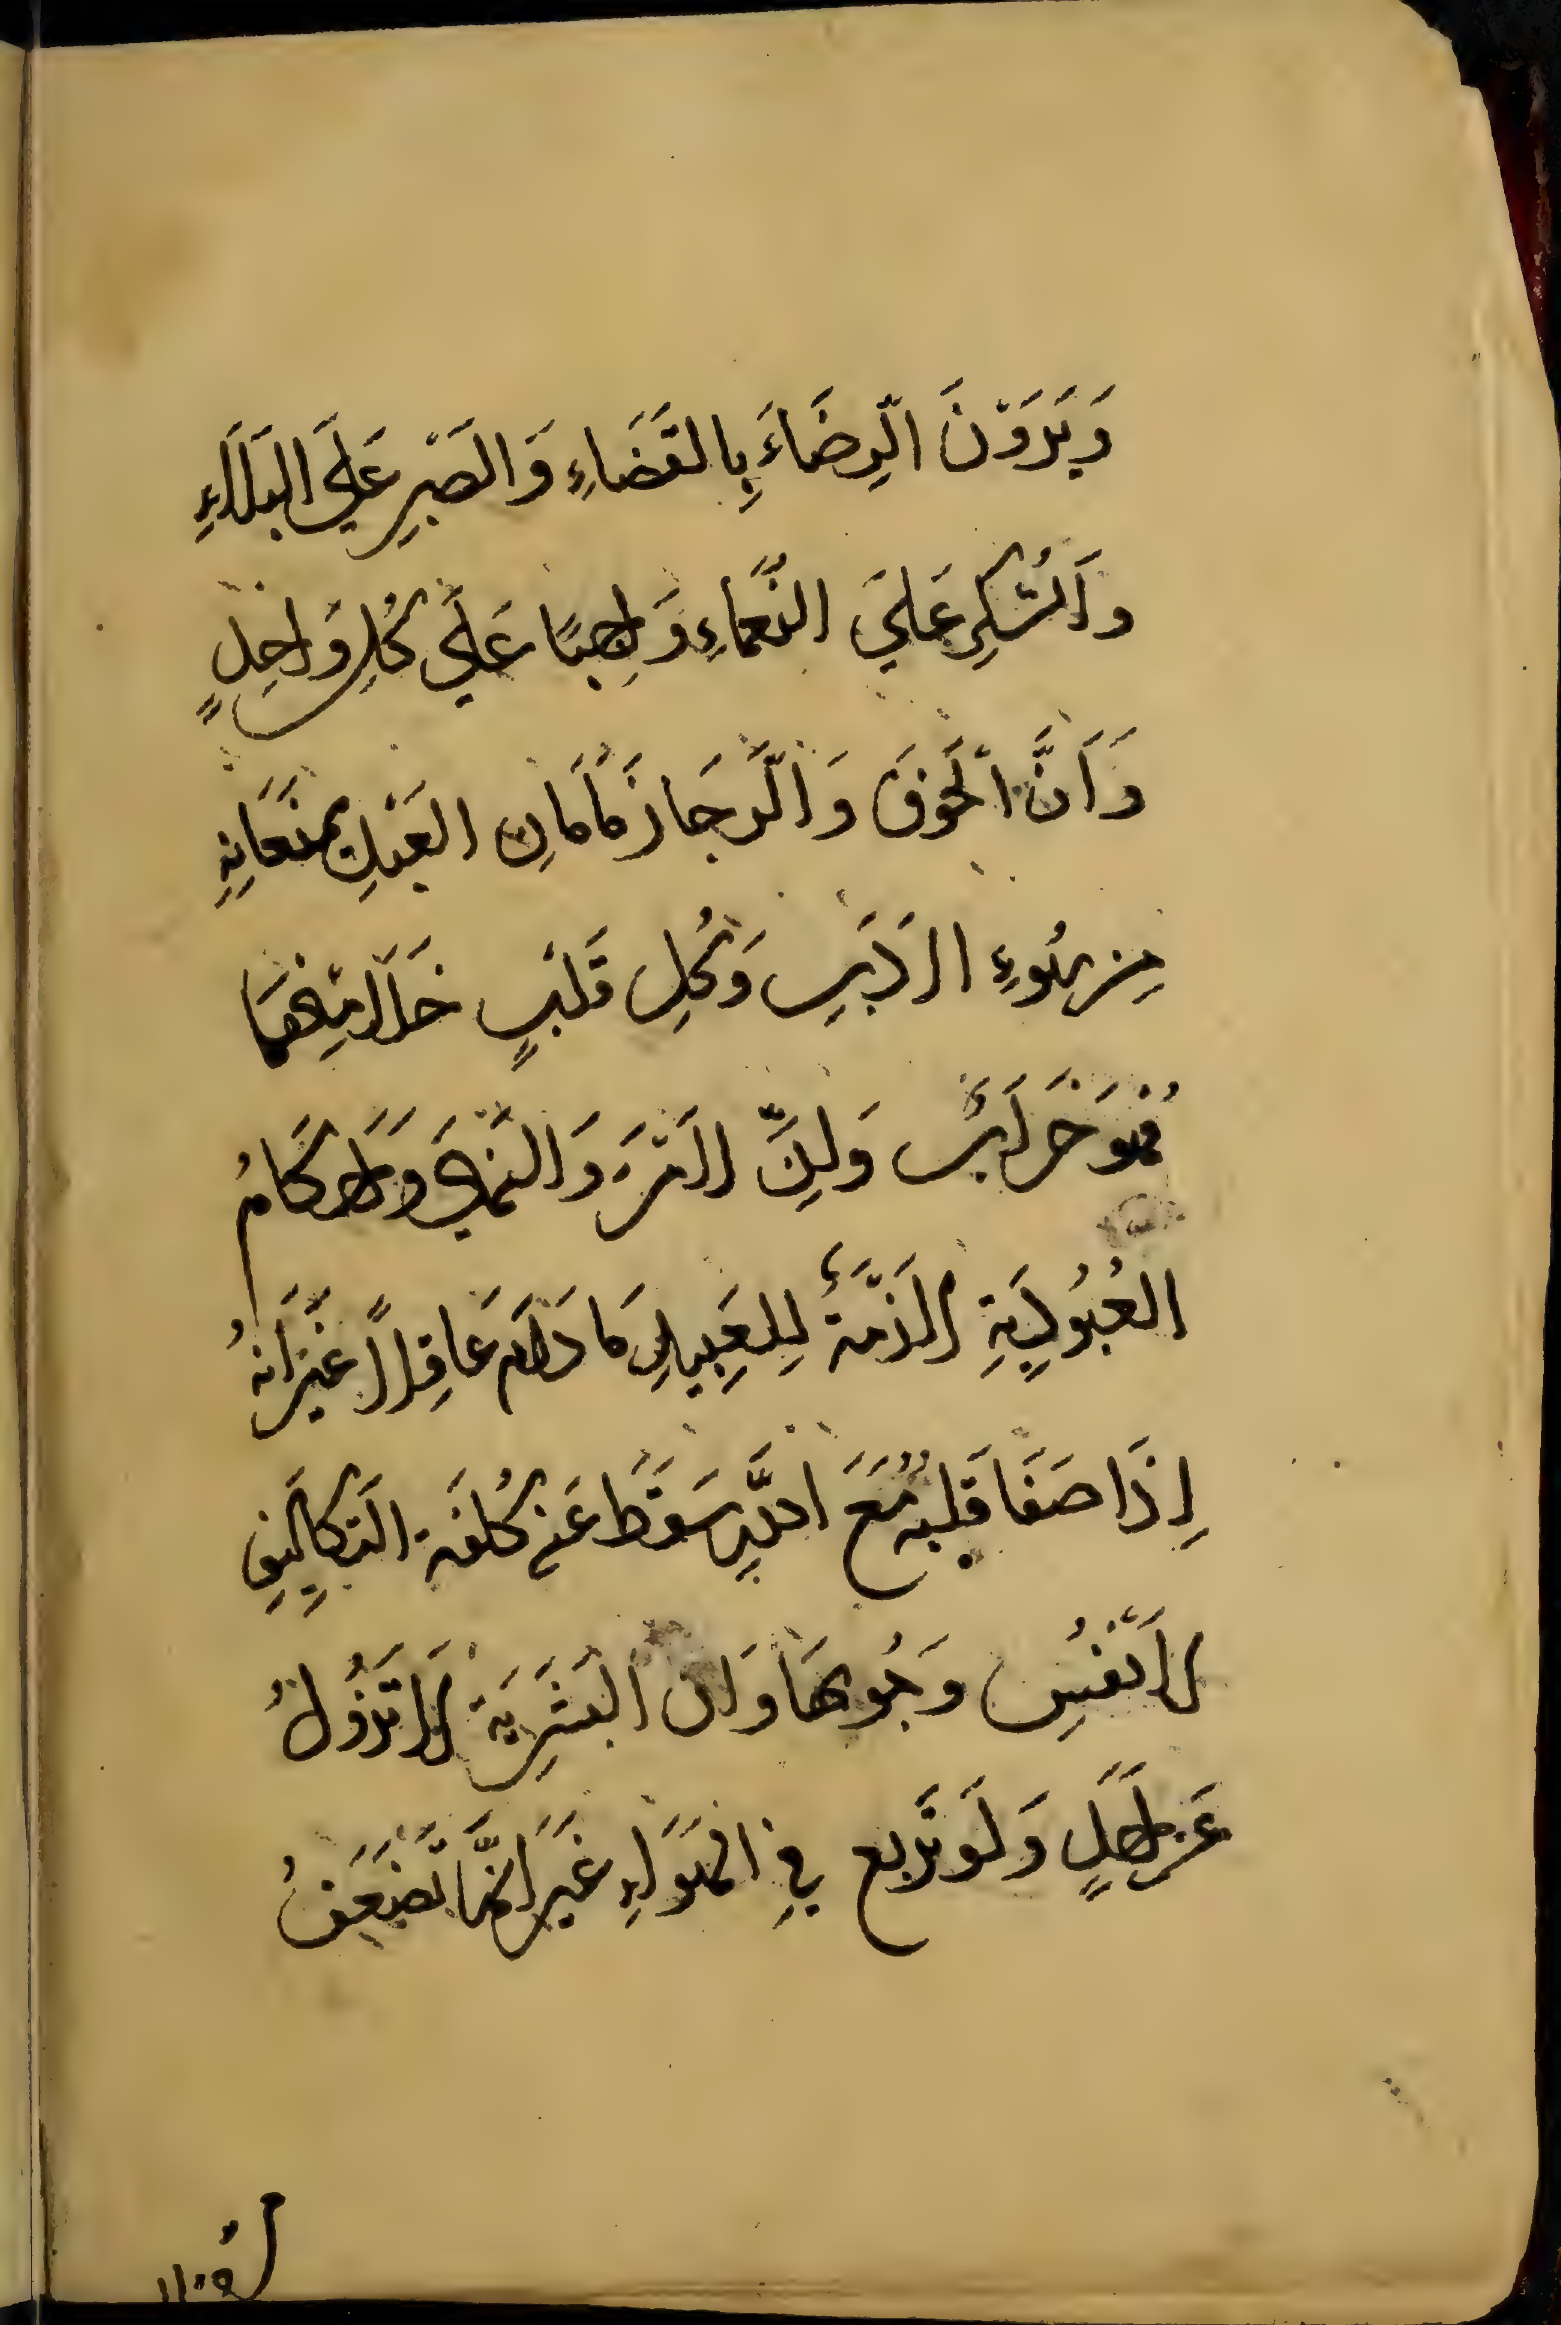 وَيَرَوْنَ الرِّضَاءَ بِالقَضَاءِ وَالصَبْرِ عَلَى البَلَاءِ
وَالشُكِرِ عَلَى النَّعمَاءِ وَاجِبًا عَلَى كُلِ وَاحِدٍ
وَاَنَّ الخَوفَ وَالرَّجَا زَمَامَانِ العَبْدِ يمنَعَانِهِ
مِن سُوءِ الاَدَبِ وَكُلِ قَلْبٍ خَلَا مِنهُمَا
فهُوَ خَرَابٌ وَلِنَّ الاَمْرَ وَالنَّهيَ وَاَحكَامُ
العُبُودِيَةِ لاَزمَةٌ لِلعَبِيدِ مَا دَامَ عَاقِلاً غَيرَ اَنهُ
اِذَا صَفَا قَلبهُ مَعَ اللهِ سَقَطَ عَنهُ كُلفَة التكَالِيفِ
لاَ نَفسِ وَجُوبهَا وَان البَشَرِيَة لاَ تَزُولُ
عَن اَحَدٍ وَلَو تَربع فِي الهَوَاءِ غَيرَ اَنهَّا تَضعَفُ